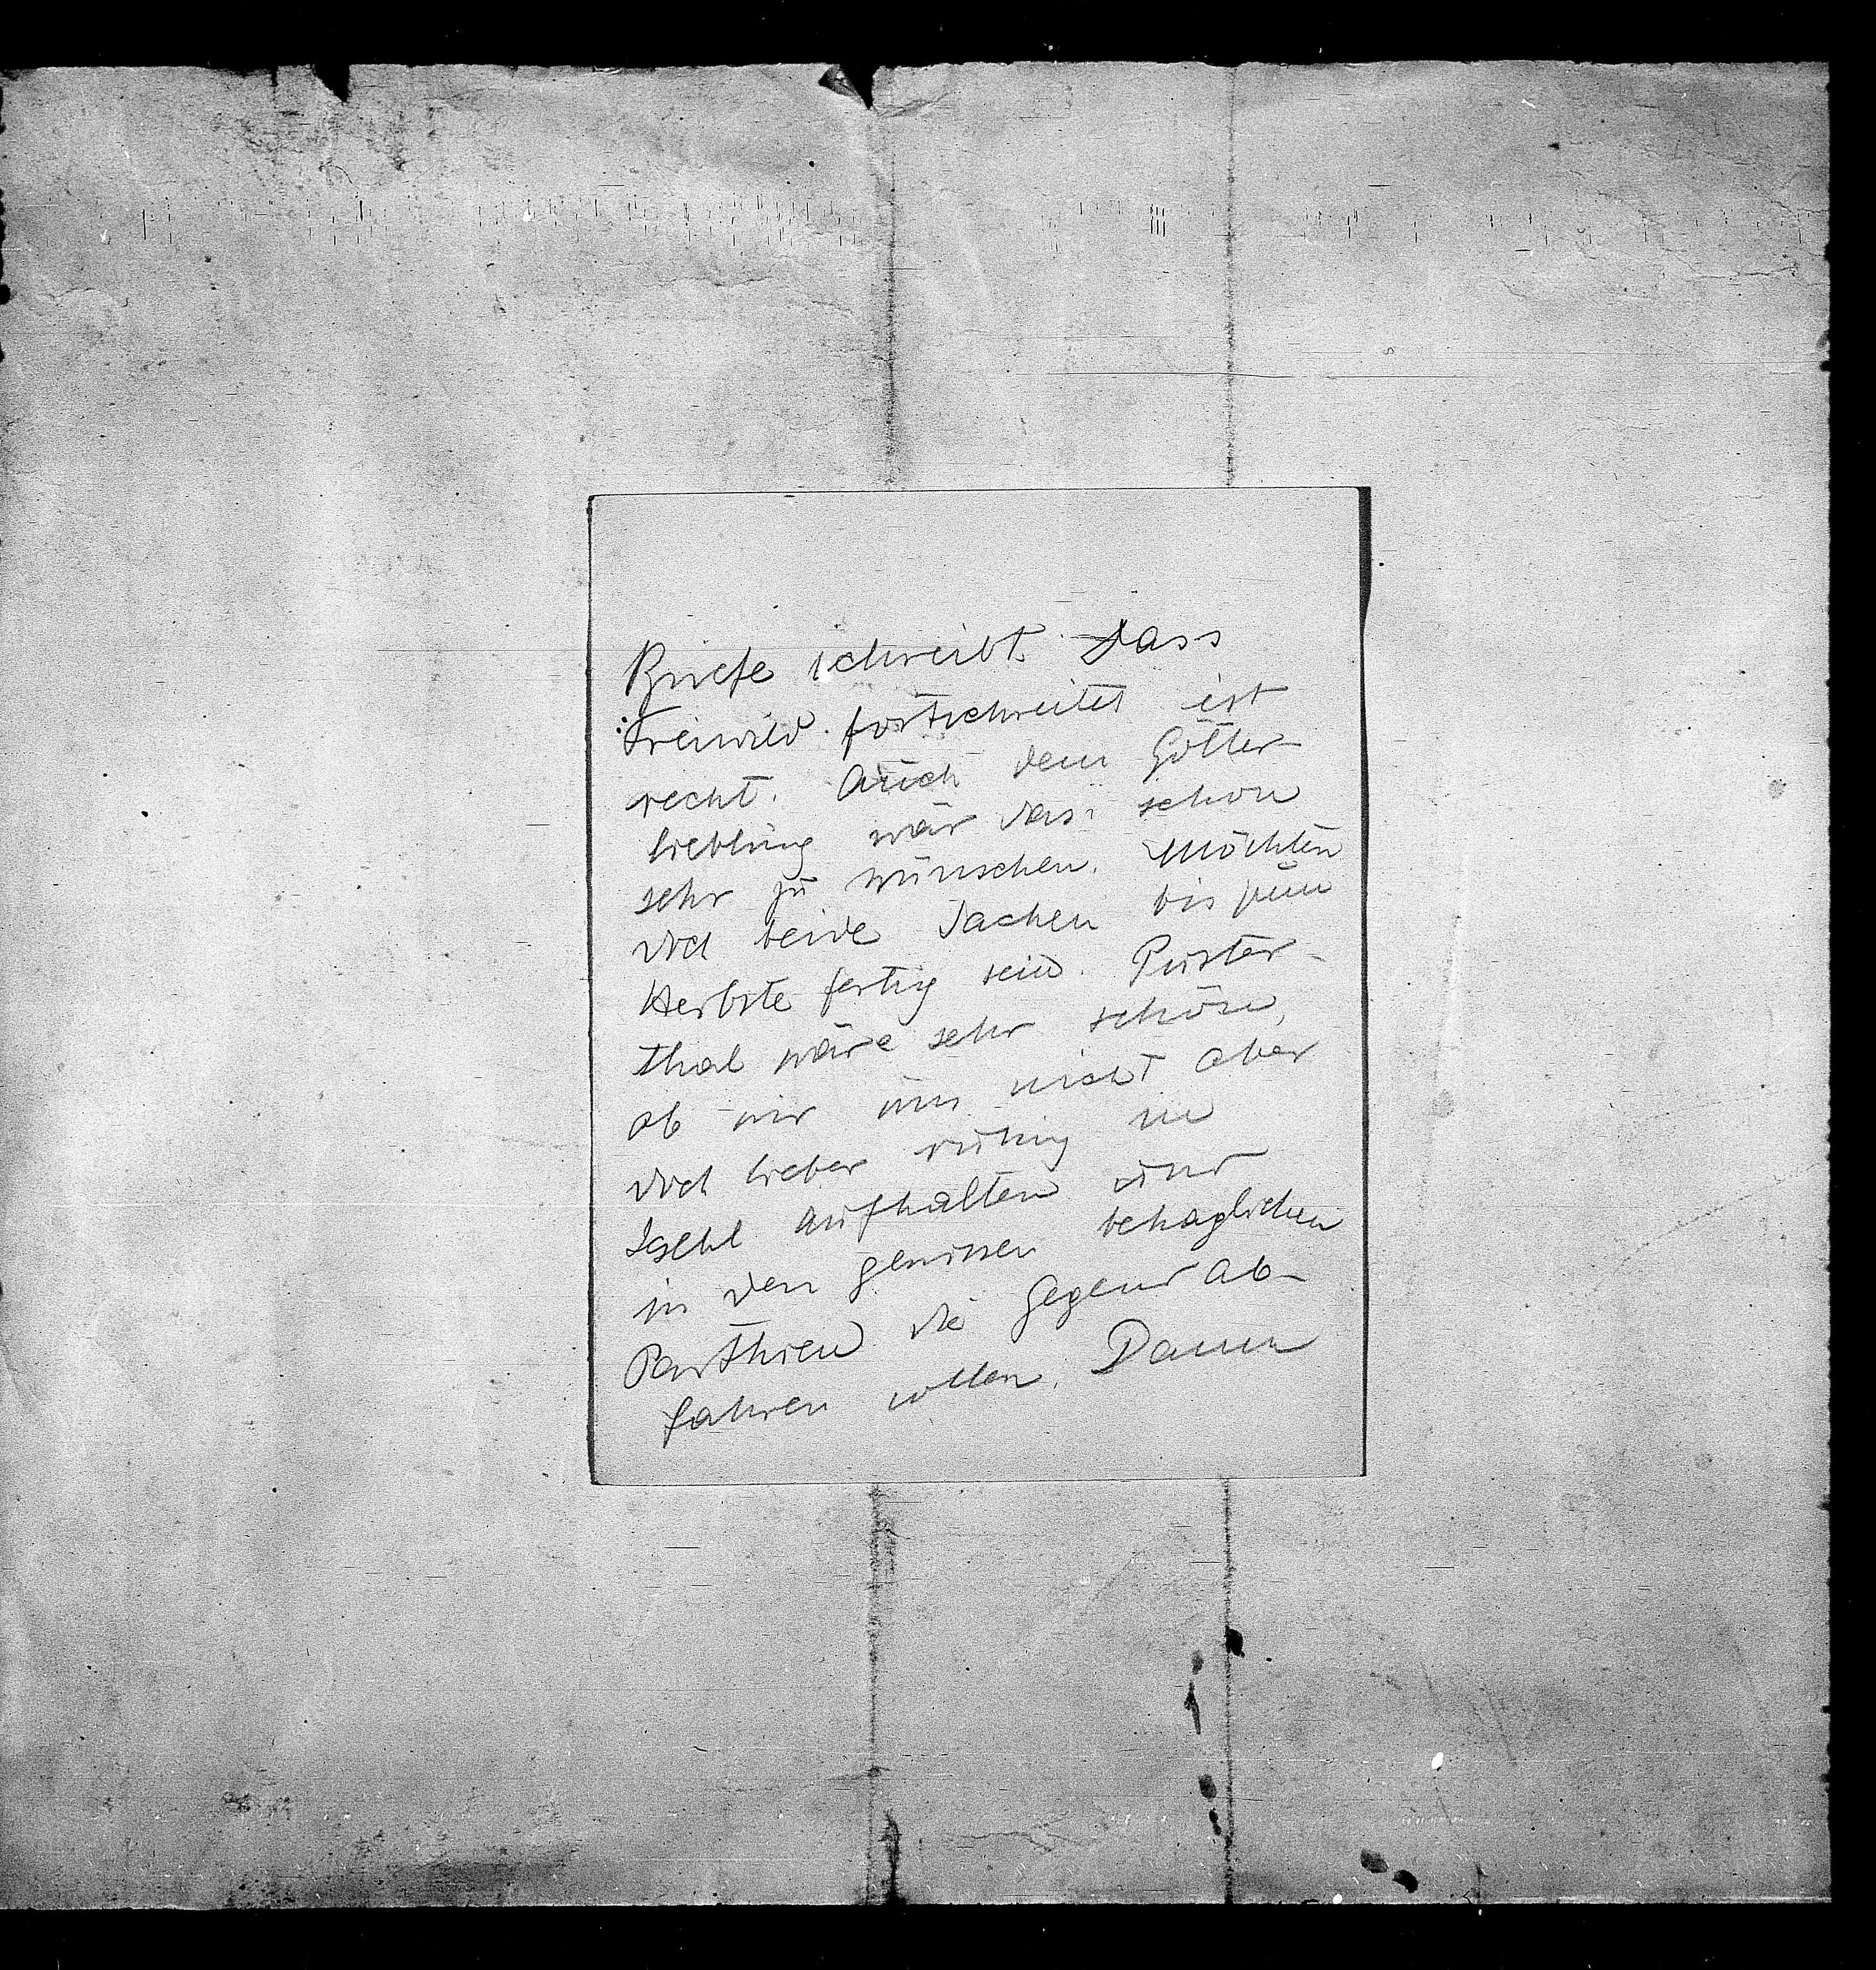 Briefe schreibt. Dass
Freiwild fortschreitet ist
recht. Auch dem Götter
liebling wär das schon
sehr zu wünschen. Möchten
doch beide Sachen bis zum
Herbste fertig sein. Puster-
thal wäre sehr schön,
ob wir uns nicht aber
doch lieber ruhig in
Ischl aufhalten und
in den gewissen behaglichen
Parthien die Gegend ab-
fahren sollen. Dann